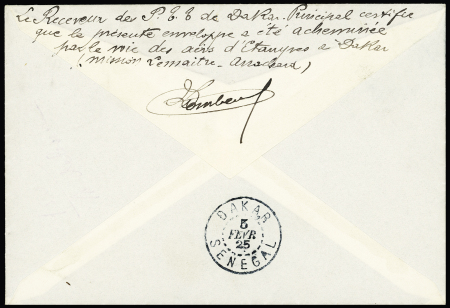 Le Receveur des P.T.T de Dakar-Principal certifie
que la présente enveloppe a été acheminée
par la voie des airs d'Etampes à Dakar
(mission Lemaitre-Arrachard)
DAKAR
3
FEVR
25
SENEGAL